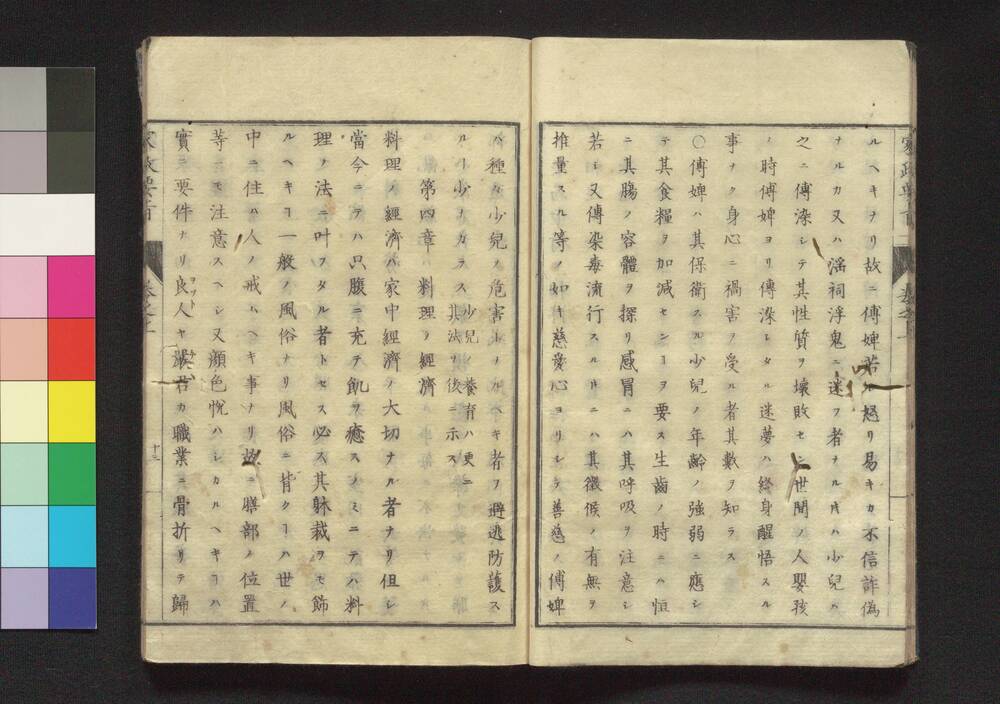 ルヘキナリ故ニ傅婢若ル怒リ易キカ不信詐偽
ナルカ又ハ滛祠浮鬼ニ迷フ者ナル片ハ少兒ハ
之ニ傳染シテ其性質ヲ壊敗セン世間ノ人嬰孩
ノ時傅婢ヨリ傳染シタル迷夢ハ終身醒悟スル
事ナク身心ニ禍害ヲ受ル者其數ヲ知ラス
〇傅婢ハ其保衛スル少兒ノ年齢ノ強弱ニ應シ
テ其食糧ヲ加减センヿヲ要ス生齒ノ時ニハ恒
ニ其膓ノ容體ヲ探リ感冒ニハ其呼吸ヲ注意シ
若シ又傳染毒流行スル片ニハ其徴候ノ有無ヲ
推量スル等ノ如キ慈愛心ヨリシテ善慈ノ傅婢
ハ種々少兒ノ危害トノルヘキ者ヲ避逃防護ス
ルヿ少ナカラス 少兒養育ハ更ニ
其法ヲ後ニ示ス
第四章 料理ノ經濟
料理ノ經濟ハ家中經濟ノ大切ナル者ナリ但シ
當今ニテハ只腹ニ充テ飢ヲ癒スノミニテハ料
理ノ法ニ叶フタル者トセス必ス其躰裁ヲモ飾
ルヘキヿ一般ノ風俗ナリ風俗ニ背クヿハ世ノ
中ニ住ハ人ノ戒ムヘキ事ナリ故ニ膳部ノ位置
等ニモ注意スヘシ又顔色悅ハシカルヘキヿハ
實ニ要件ナリ良人ヤ嚴君カ職業ニ骨折リテ歸
家政要旨
十三